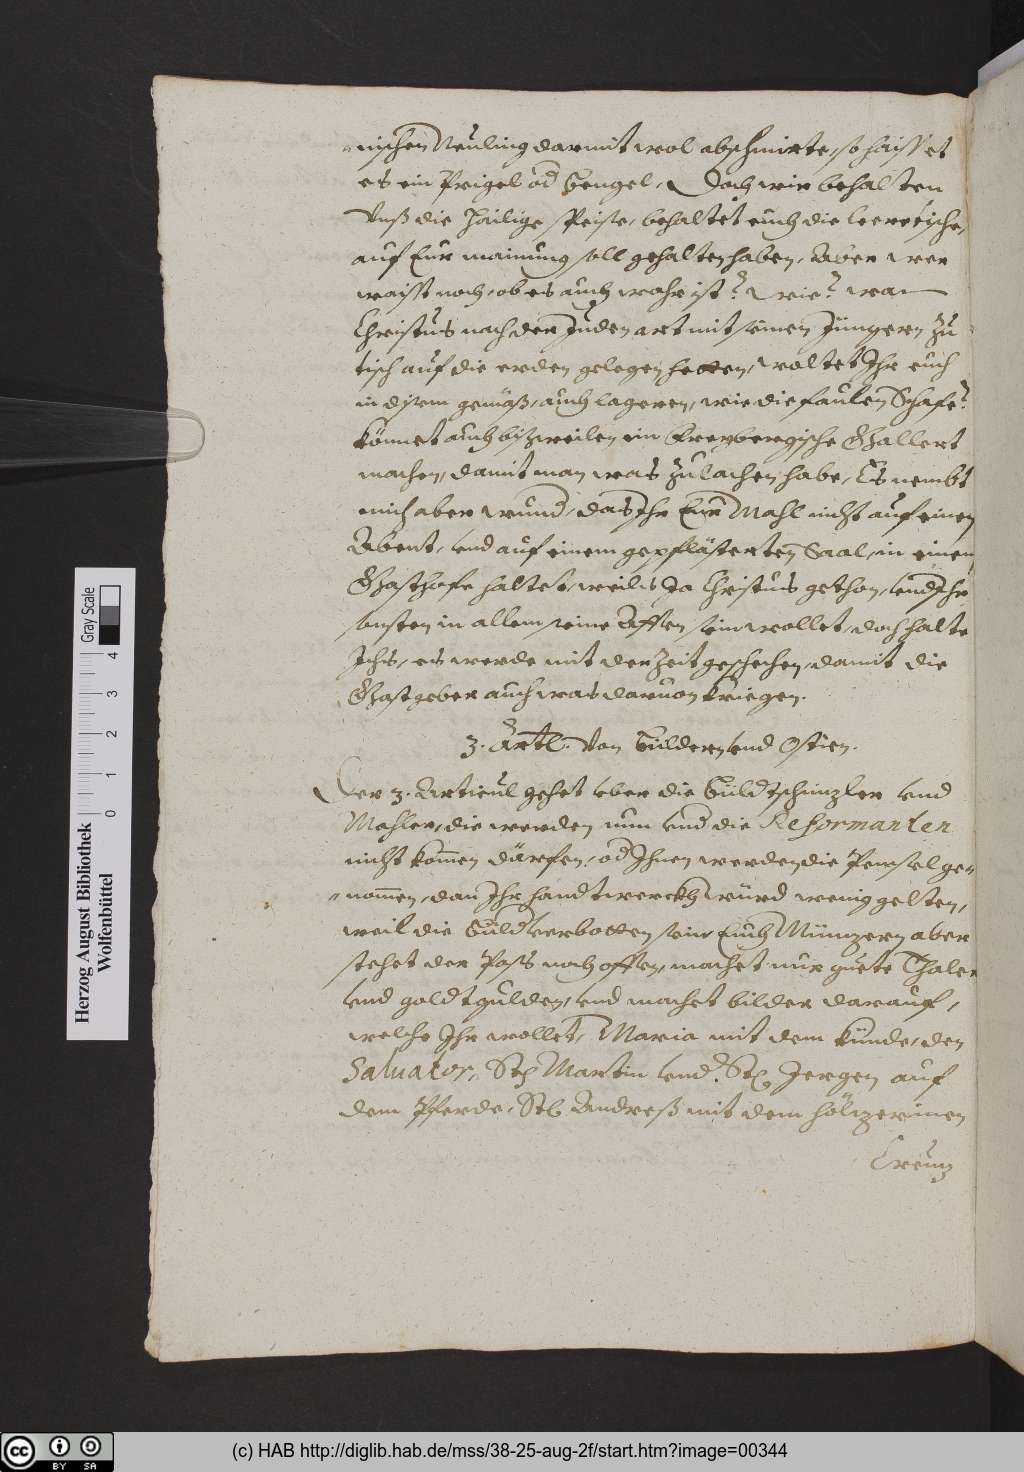 nischen Neuling darmit wol abschmirte, so haisset
es ein Prigel od Bengel. Doch wir behalten
Vnß die Hailige Speise, behaltet euch die leere tische,
auf Eur mainung soll gehalten haben. Aber wer
waisst noch, ob es auch wahr ist? Wie? wan
Christus nach der Juden art mit seinen Jüngern zu
tisch auf die erden gelegen hetten, woltet Ihr euch
in dißem gemäß, auch lageren, wie die faulen Schafe?
Könnet auch bißweilen ein Gallert
machen, damit man was zulachen habe, Es nembt
mich aber wund, das Ihr Eur Mahl nicht auf einen
Abent, vnd auf einem gepflästerten Saal, in einem
Gasthofe haltet, weils Ja Christus gethon, vnd Ihr
sonsten in allem seine Affen sein wollet, doch halte
Ichs, es werde mit der Zeit geschechen, damit die
Gastgeber auch was daruon kriegen.
3. Artl. Von Bildern vnd Ostien.
Der 3. Articul gehet vber die Bildtschnizler vnd
Mahler, die werden nun vnd die Reformanten
nicht komen därfen, od Ihnen werden die Pemsel ge-
nomen, dan Ihr handtwerckh würd wenig gelten,
weil die Bilder verbotten sein, Euch Münzern aber
stehet der Pass noch offen, machet nur guete Thaler
vnd goldtgulden, vnd machet bilder darauf,
welche Ihr wollet, Maria mit dem Kinde, den
Saluator, St. Martin vnd St. Jergen auf
dem Pferde, St. Andreß mit dem hölzerinen
Creuz
Herzog August Bibliothek
Wolfenbüttel
0 1 2 3 4
Gray Scale
cc BY SA
(c) HAB http://diglib.hab.de/mss/38-25-aug-2f/start.htm?image=00344